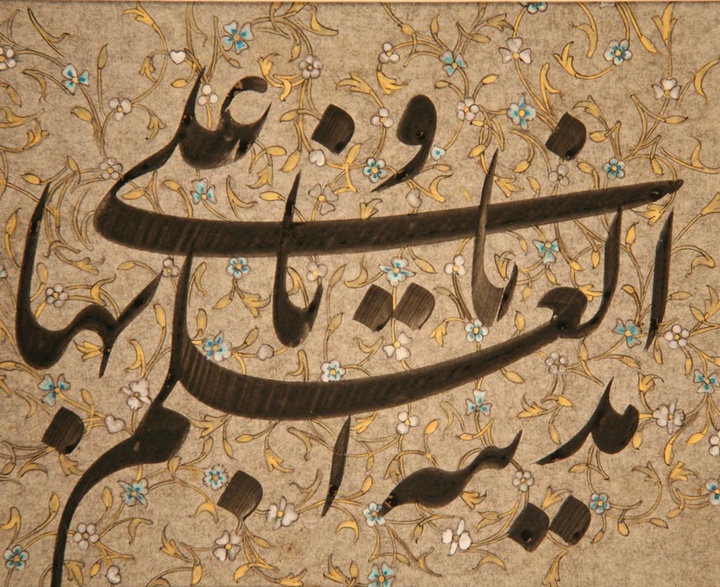 انا مدینة العلم و علی بابها